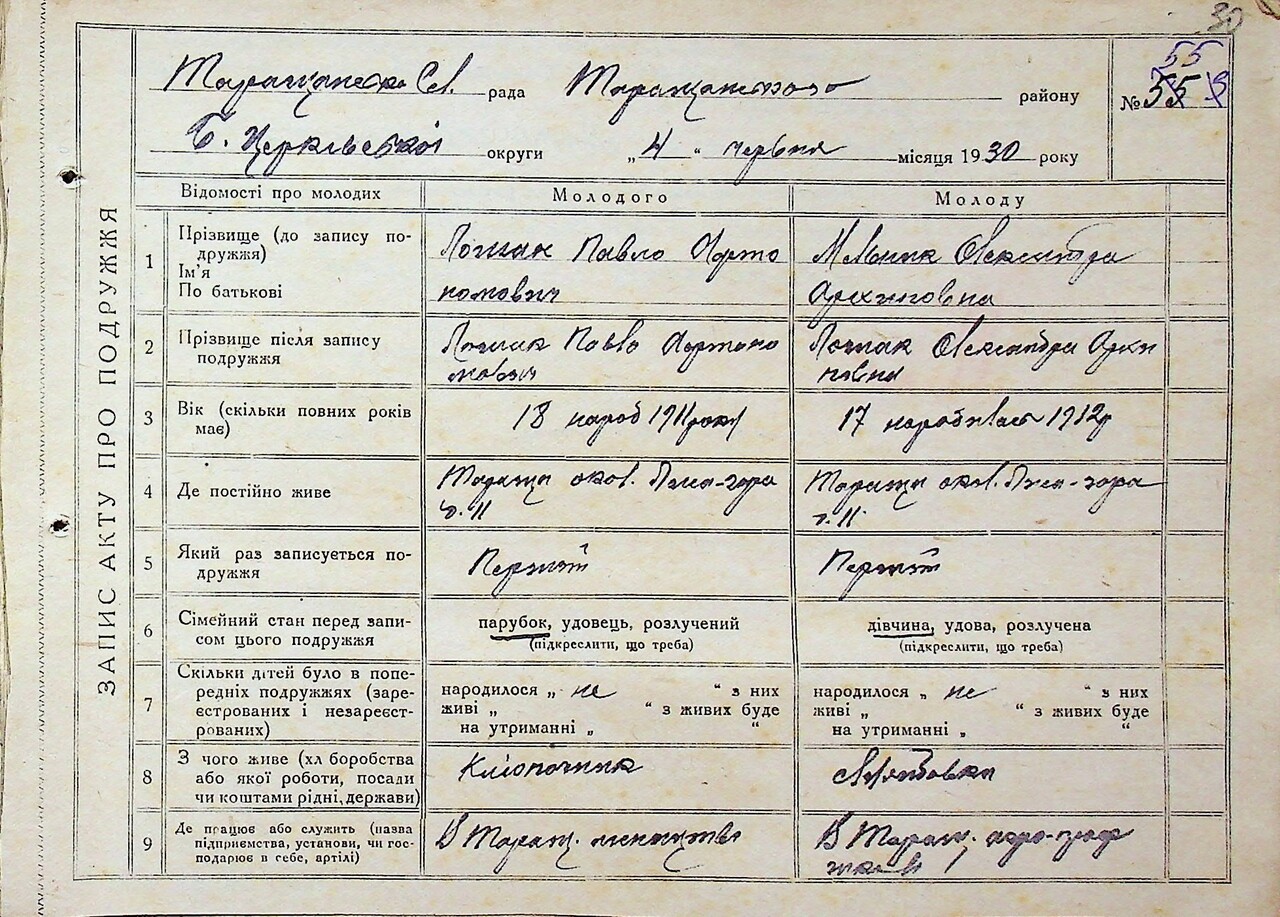 30
55
Таращанська Сел. рада Таращанського району №55
Б. Церківської округи „4“ червня місяця 1930 року
ЗАПИС АКТУ ПРО ПОДРУЖЖЯ
Відомості про молодих Молодого Молоду
1 Прізвище (до запису подружжя) Ім'я По батькові
Павло Арто
помович
Мельник Олександра
Архиповна
2 Прізвище після запису
подружжя
Павло Артамо
нович
Олександра Архи
повна
3 Вік (скільки повних років
має)
18 народ 1911 року
17 народилась 1912р
4 Де постійно живе
Тараща окол. гора
ч. 11
Тараща окол. гора
ч. 11
5 Який раз записується по-
дружжя
Первий
Первий
6 Сімейний стан перед запи-
сом цього подружжя
парубок, удовець, розлучений
(підкреслити, що треба)
дівчина, удова, розлучена
(підкреслити, що треба)
7 Скільки дітей було в попе-
редніх подружжях (заре-
єстрованих і незареєст-
рованих)
народилося „ не “ з них
живі „ “ з живих буде
на утриманні „ “
народилося „ не “ з них
живі „ “ з живих буде
на утриманні „ “
8 З чого живе (хл боробства
або якої роботи, посади
чи коштами рідні, держави)
9 Де працює або служить (назва
підприємства, установи, чи гос-
подарює в себе, артілі)
В Таращ.
В Таращ.